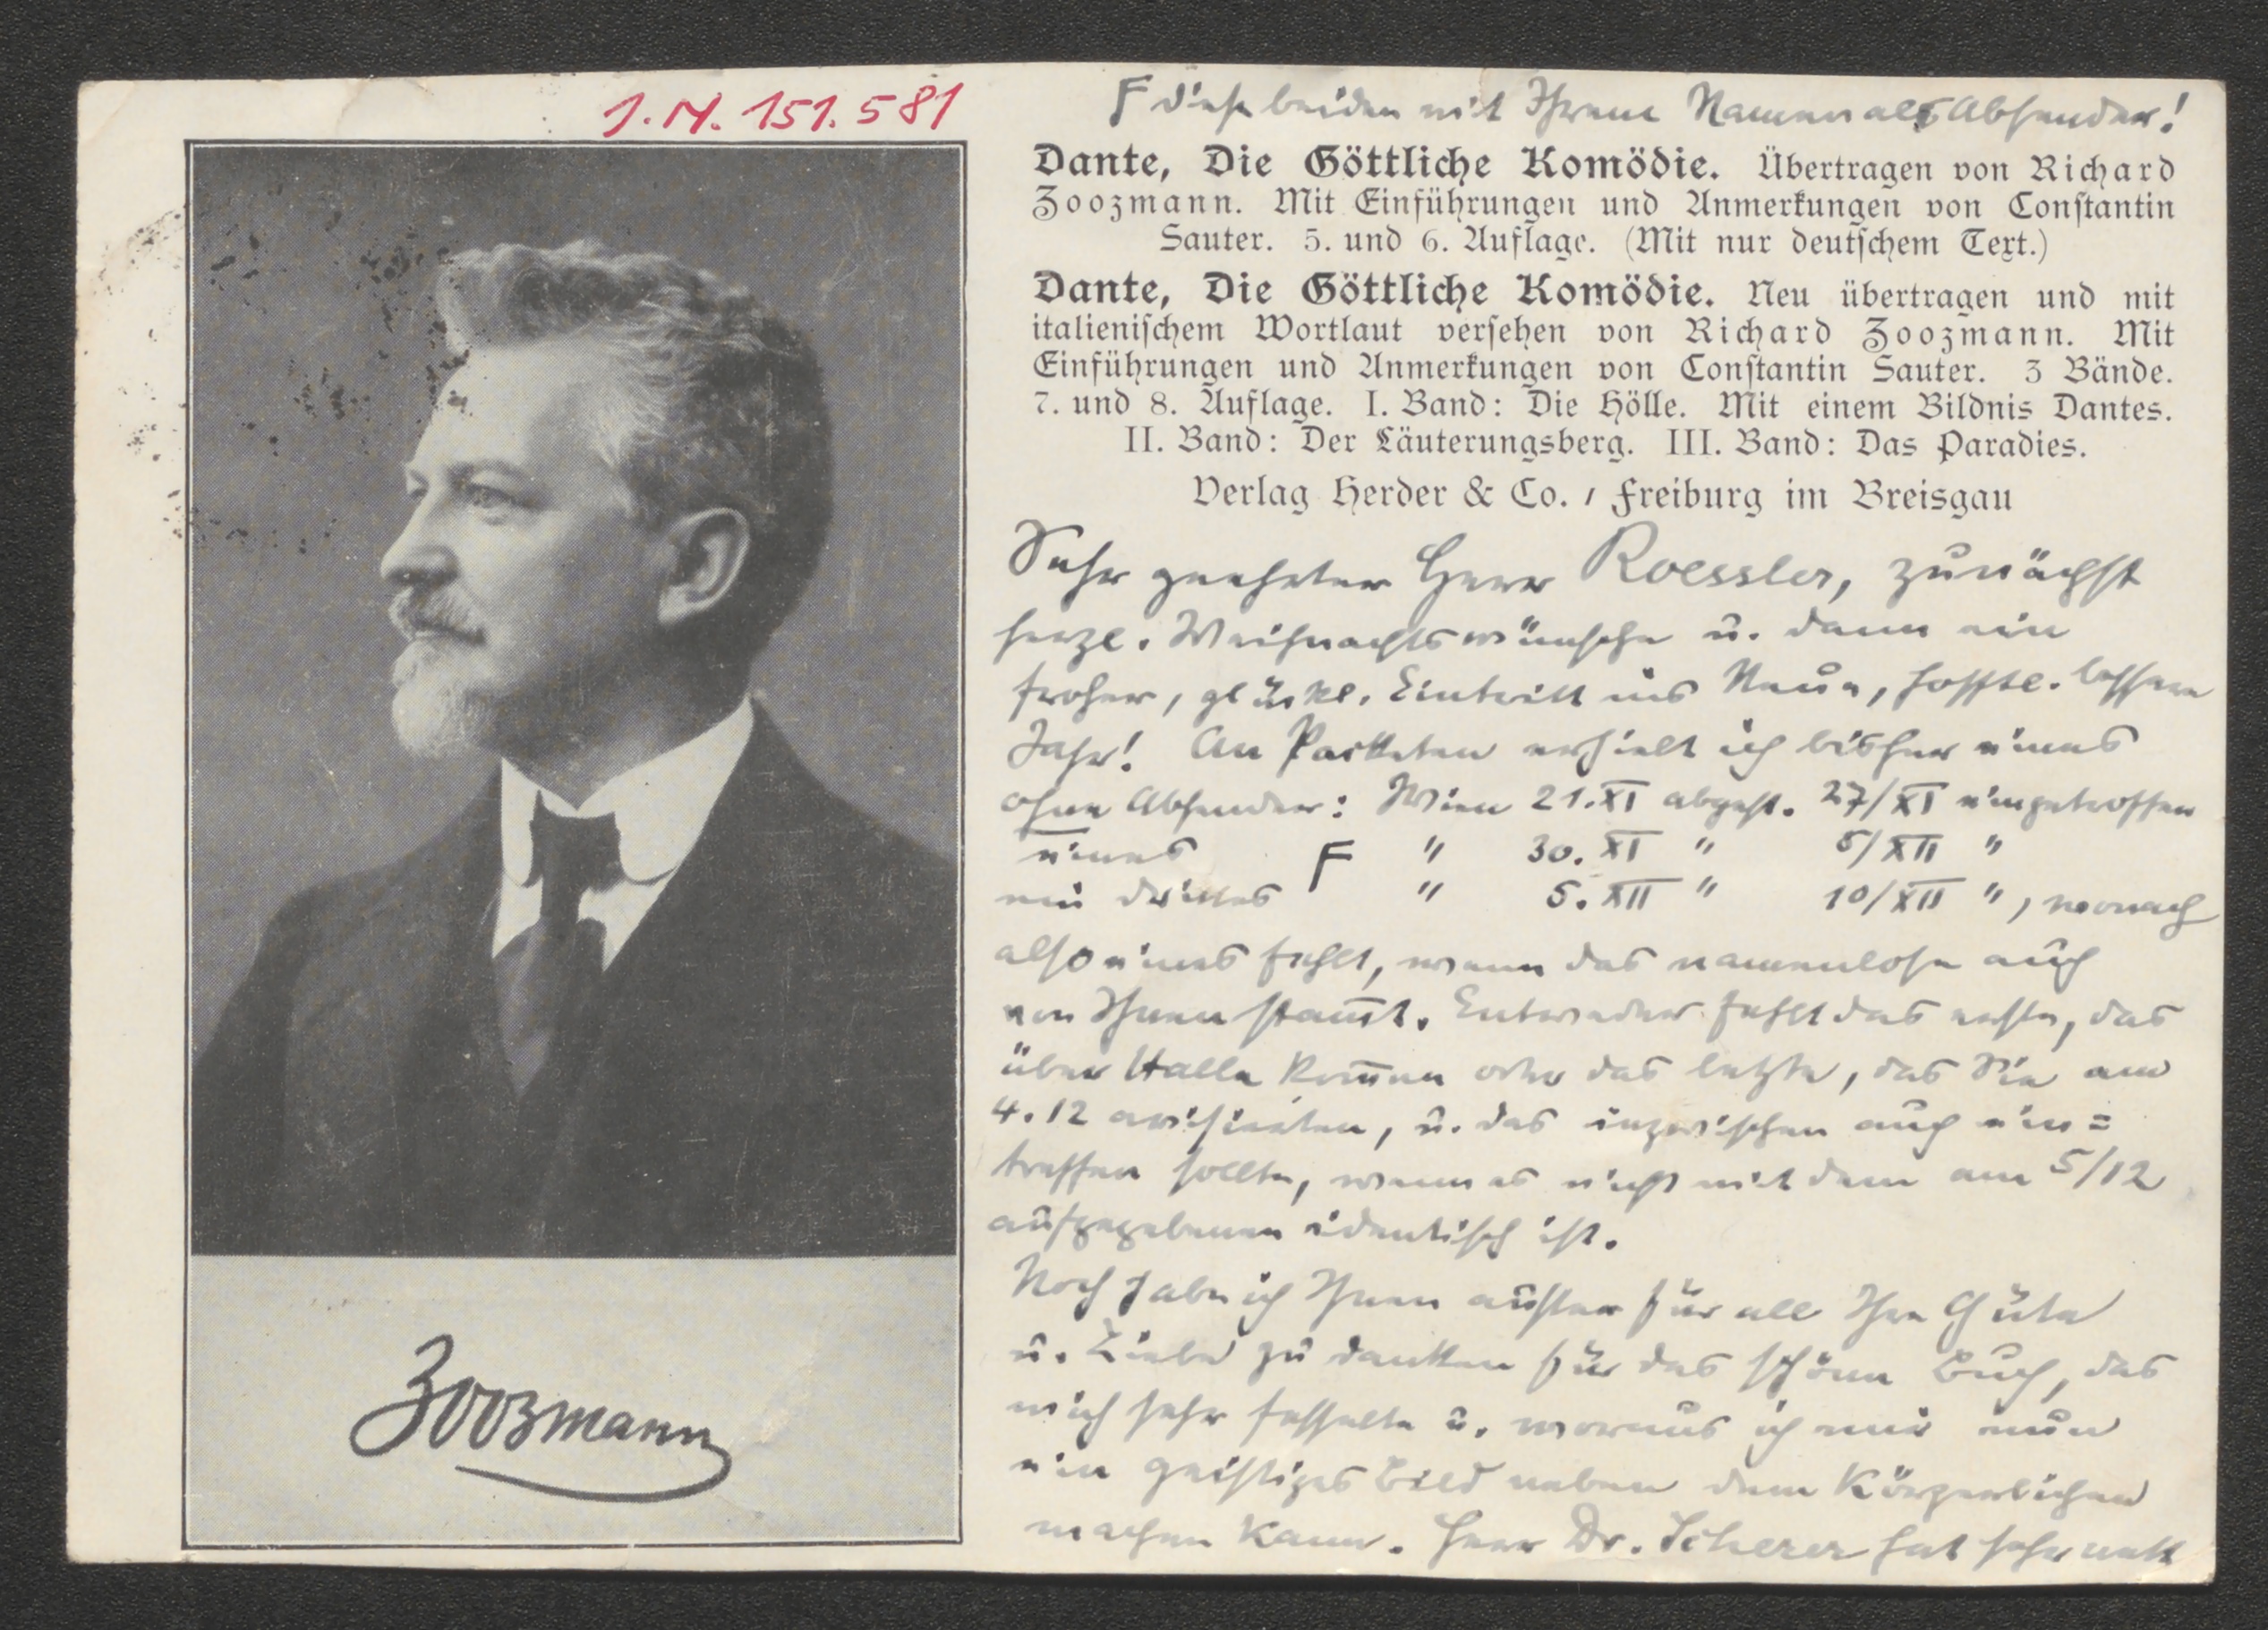 J. N. 151.581
F diese beiden mit Ihrem Namen als Absender!
Dante, Die Göttliche Komödie. Übertragen von Richard
Zoozmann. Mit Einführungen und Anmerkungen von Constantin
Sauter. 5. und 6. Auflage. (Mit nur deutschem Text.)
Dante, Die Göttliche Komödie. Neu übertragen und mit
italienischem Wortlaut versehen von Richard Zoozmann. Mit
Einführungen und Anmerkungen von Constantin Sauter. 3 Bände.
7. und 8. Auflage. I. Band: Die Hölle. Mit einem Bildnis Dantes.
II. Band: Der Läuterungsberg. III. Band: Das Paradies.
Verlag Herder & Co. / Freiburg im Breisgau
Sehr geehrter Herr Roessler, zunächst
herzl. Weihnachtswünsche u. dann ein
froher, glückl. Eintritt ins Neue, hofftl. bessere
Jahr! An Packeten erhielt ich bisher eines
ohne Absender: Wien 21.XI abgest. 27/XI eingetroffen
eines F " 30. XI " 5/XII "
ein drittes " 5. XII " 10/XII ", wonach
also eines fehlt, wenn das namenlose auch
von Ihnen stam̄t. Entweder fehlt das erste, das
über Halle kom̄en oder das letzte, das Sie am
4.12 avisierten, u. das inzwischen auch ein=
treffen sollte, wenn es nicht mit dem am 5/12
aufgegebenen identisch ist.
Noch habe ich Ihnen außer für all Ihre Güte
u. Liebe zu danken für das schöne Buch, das
mich sehr fesselte u. woraus ich mir nun
ein geistiges Bild neben dem Körperlichen
machen kann. Herr Dr. Scherer hat sehr nett
Zoozmann